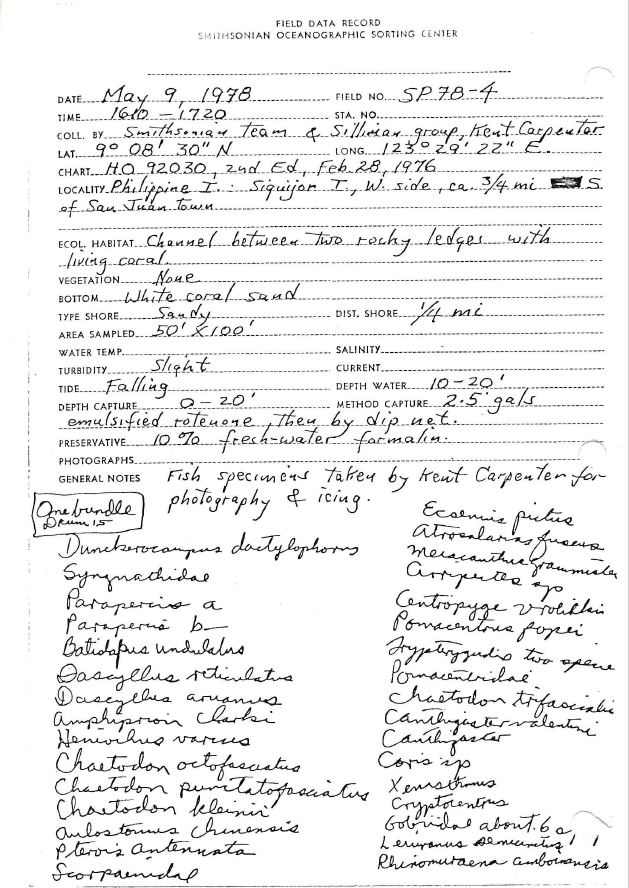 FIELD DATA RECORD
SMITHSONIAN OCEANOGRAPHIC SORTING CENTER
DATE May 9, 1978 FIELD NO. SP78-4
TIME 1610-1720 STA. NO.
COLL. BY Smithsonian Team & Silliman group, Kent Carpenter
LAT. 9° 08' 30" N LONG. 123° 29' 22" E.
CHART HO 92030, 2nd Ed, Feb 28, 1976
LOCALITY Philippine I.: Siquijor I., W. side, ca. 3/4 mi S.
of San Juan town
ECOL. HABITAT Channel between two rocky ledges with
living coral.
VEGETATION None
BOTTOM White coral sand
TYPE SHORE Sandy DIST. SHORE 1/4 mi
AREA SAMPLED 50' X 100'
WATER TEMP. SALINITY
TURBIDITY Slight CURRENT
TIDE Falling DEPTH WATER 10-20'
DEPTH CAPTURE 0-20' METHOD CAPTURE 2.5 gals
emulsified rotenone, then by dip net.
PRESERVATIVE 10% fresh-water formalin.
PHOTOGRAPHS
GENERAL NOTES Fish specimens taken by Kent Carpenter for
photography & icing.
One bundle
Drum 15
Dunckerocampus dactylophorus
Syngnathidae
Parapercis a
Parapercis b
Batidapus undulatus
Dascyllus reticulatus
Dascyllus aruanus
Amphiprion clarki
Heniochus varius
Chaetodon octofasciatus
Chaetodon punctatofasciatus
Chaetodon kleinii
Aulostomus chinensis
Pterois antennata
Scorpaenidae
Ecsenius pictus
Atrosalarias fuscus
Meiacanthus grammistes
Cirripectes sp
Centropyge vrolikii
Pomacentrus popei
Trypterygidis two specie
Pomacentridae
Chaetodon trifascialis
Canthigaster valentini
Canthigaster
Coris sp
Xenisthmus
Cryptocentrus
Gobiidae about 6 a
Leiuranus semicinctus 1
Rhinomuraena amboinensis